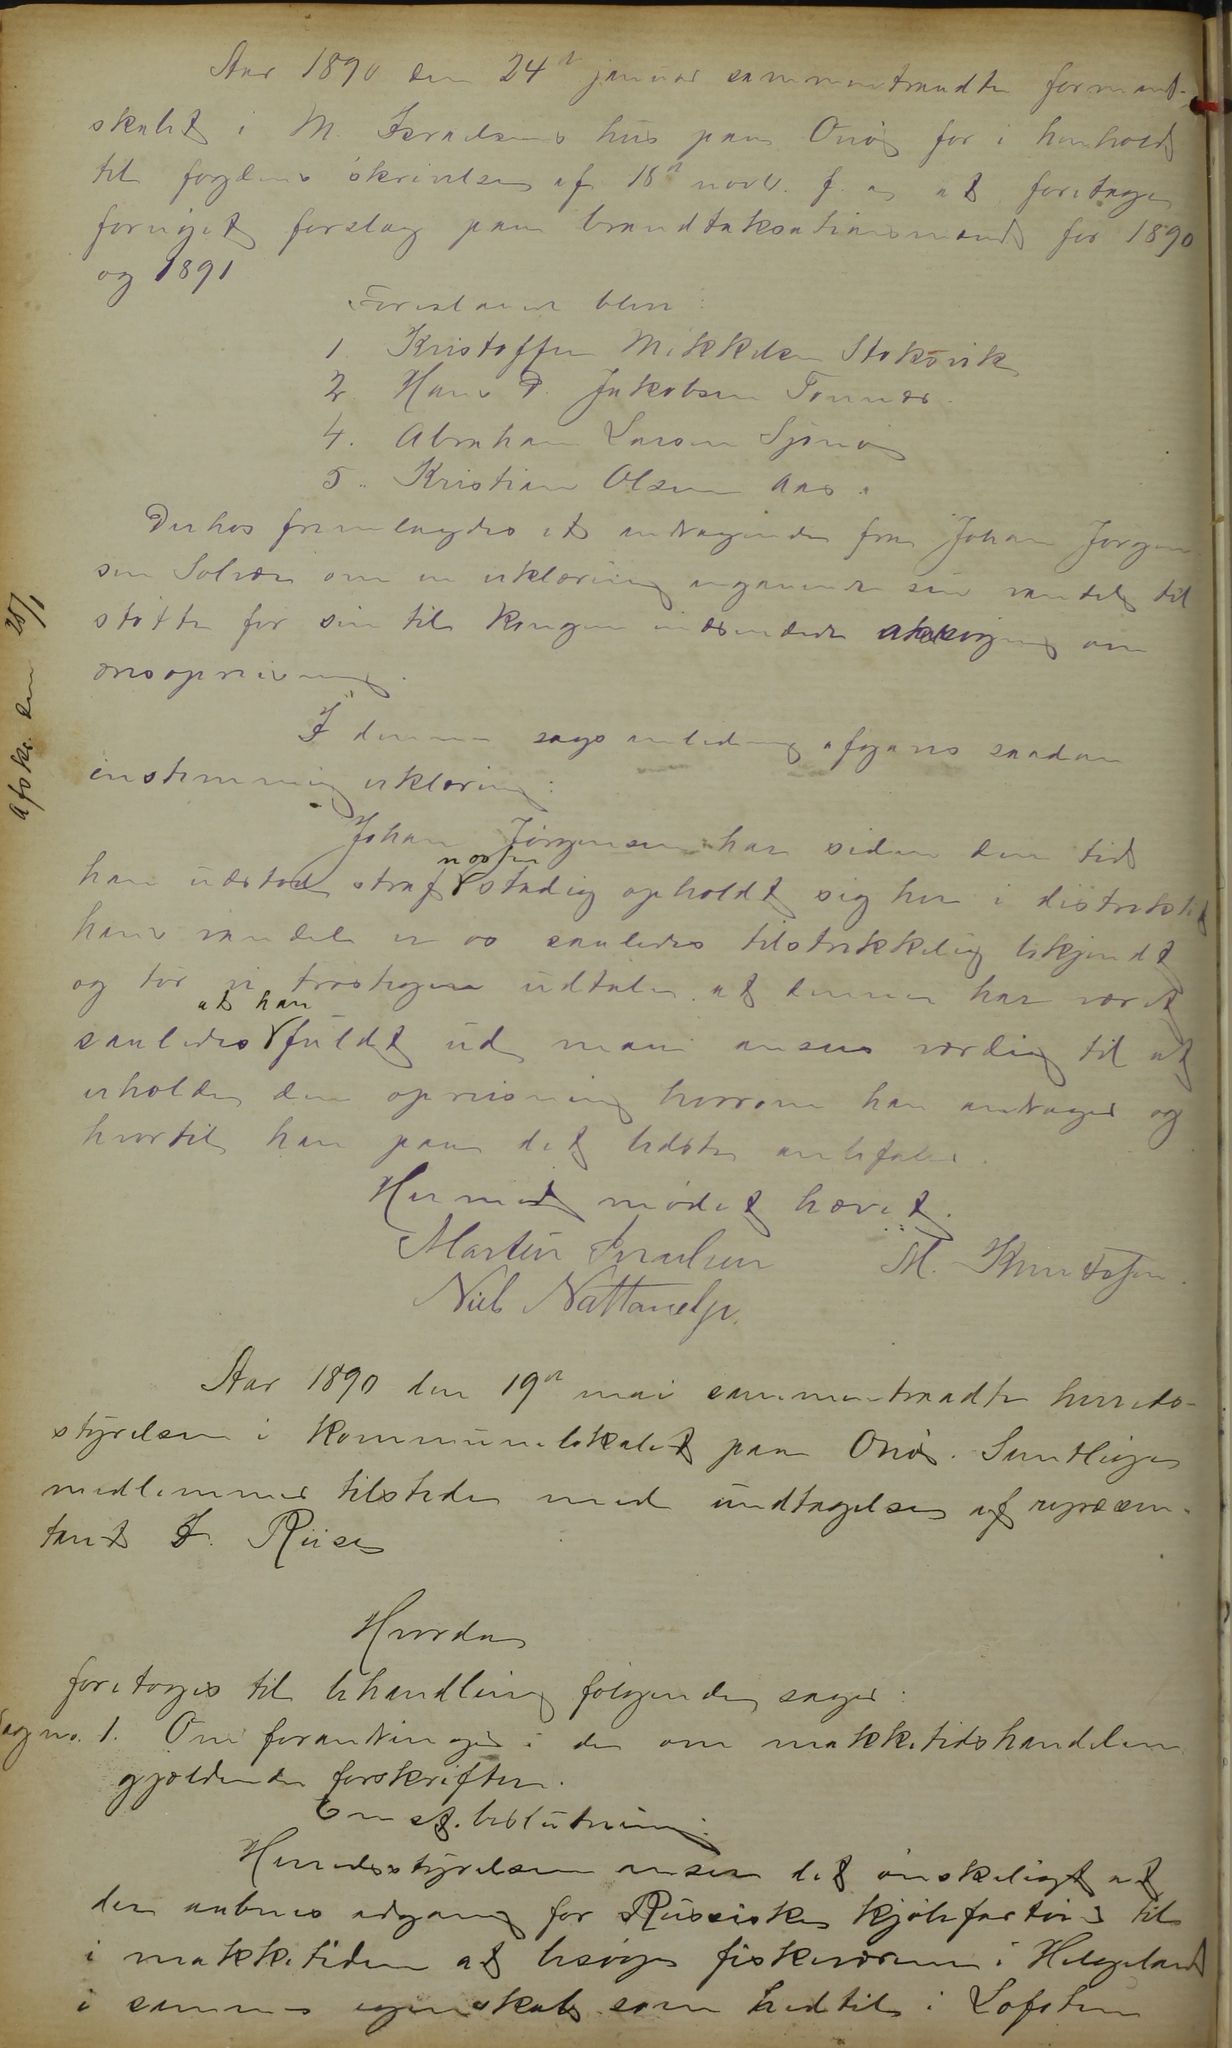 Aar 1890 den 24de januar sammentraadte formand-
skabet i M. Israelsens hus paa Onø for i henhold
til fogdens skrivelse af 18de novb. f. a. at foretage
fornyet forslag paa brandtakstationsmænd for 1890
og 1891
Foreslaaet blev:
1. Kristoffer Mikkelsen Stoksvik
2. Hans P. Jakobsen Tonnes.
4. Abraham Larsen Sjonø
5. Kristian Olsen Aas.
Derhos fremlagdes et andragende fra Johan Jørgen-
sen Solvær om en erklæring angaaende sin vandel til
støtte for sin til kongen indsendte ansøgning om
æresopreisning.
I denne sags anledning afgaves saadan
enstemmig erklæring:
Johan Jørgensen har siden den tid
han udstod straf stadig opholdt sig her i distriktet
hans vandel er os saaledes tilstrækkelig bekjendt
og tør vi trøstigen udtale at denne har været
saaledes at han fuldt ud maa ansees værdig til at
erholde den opreisning hvorom han andrager og
hvortil han paa det bedste anbefales.
Hermed mødet hævet.
Martin Israelsen M. Knutsen.
Niels Nattanaelsen.
Afskr. den 28/1
Aar 1890 den 19de mai sammentraadte herreds-
styrelsen i kommunelokalet paa Onø. Samtlige
medlemmer tilstede med undtagelse af repræsen-
tant I. Riise
Hvorda
foretoges til behandling følgende sager:
Sag no. 1. Om forandringer i de om makketidshandelen
gjældende forskrifter.
Enst. beslutning:
Herredsstyrelsen anser det ønskeligt at
der aabnes adgang for Russiske kjøbefartøier til
i makketiden at besøge fiskeværene i Helgeland
i samme egenskab som hidtil i Lofoten